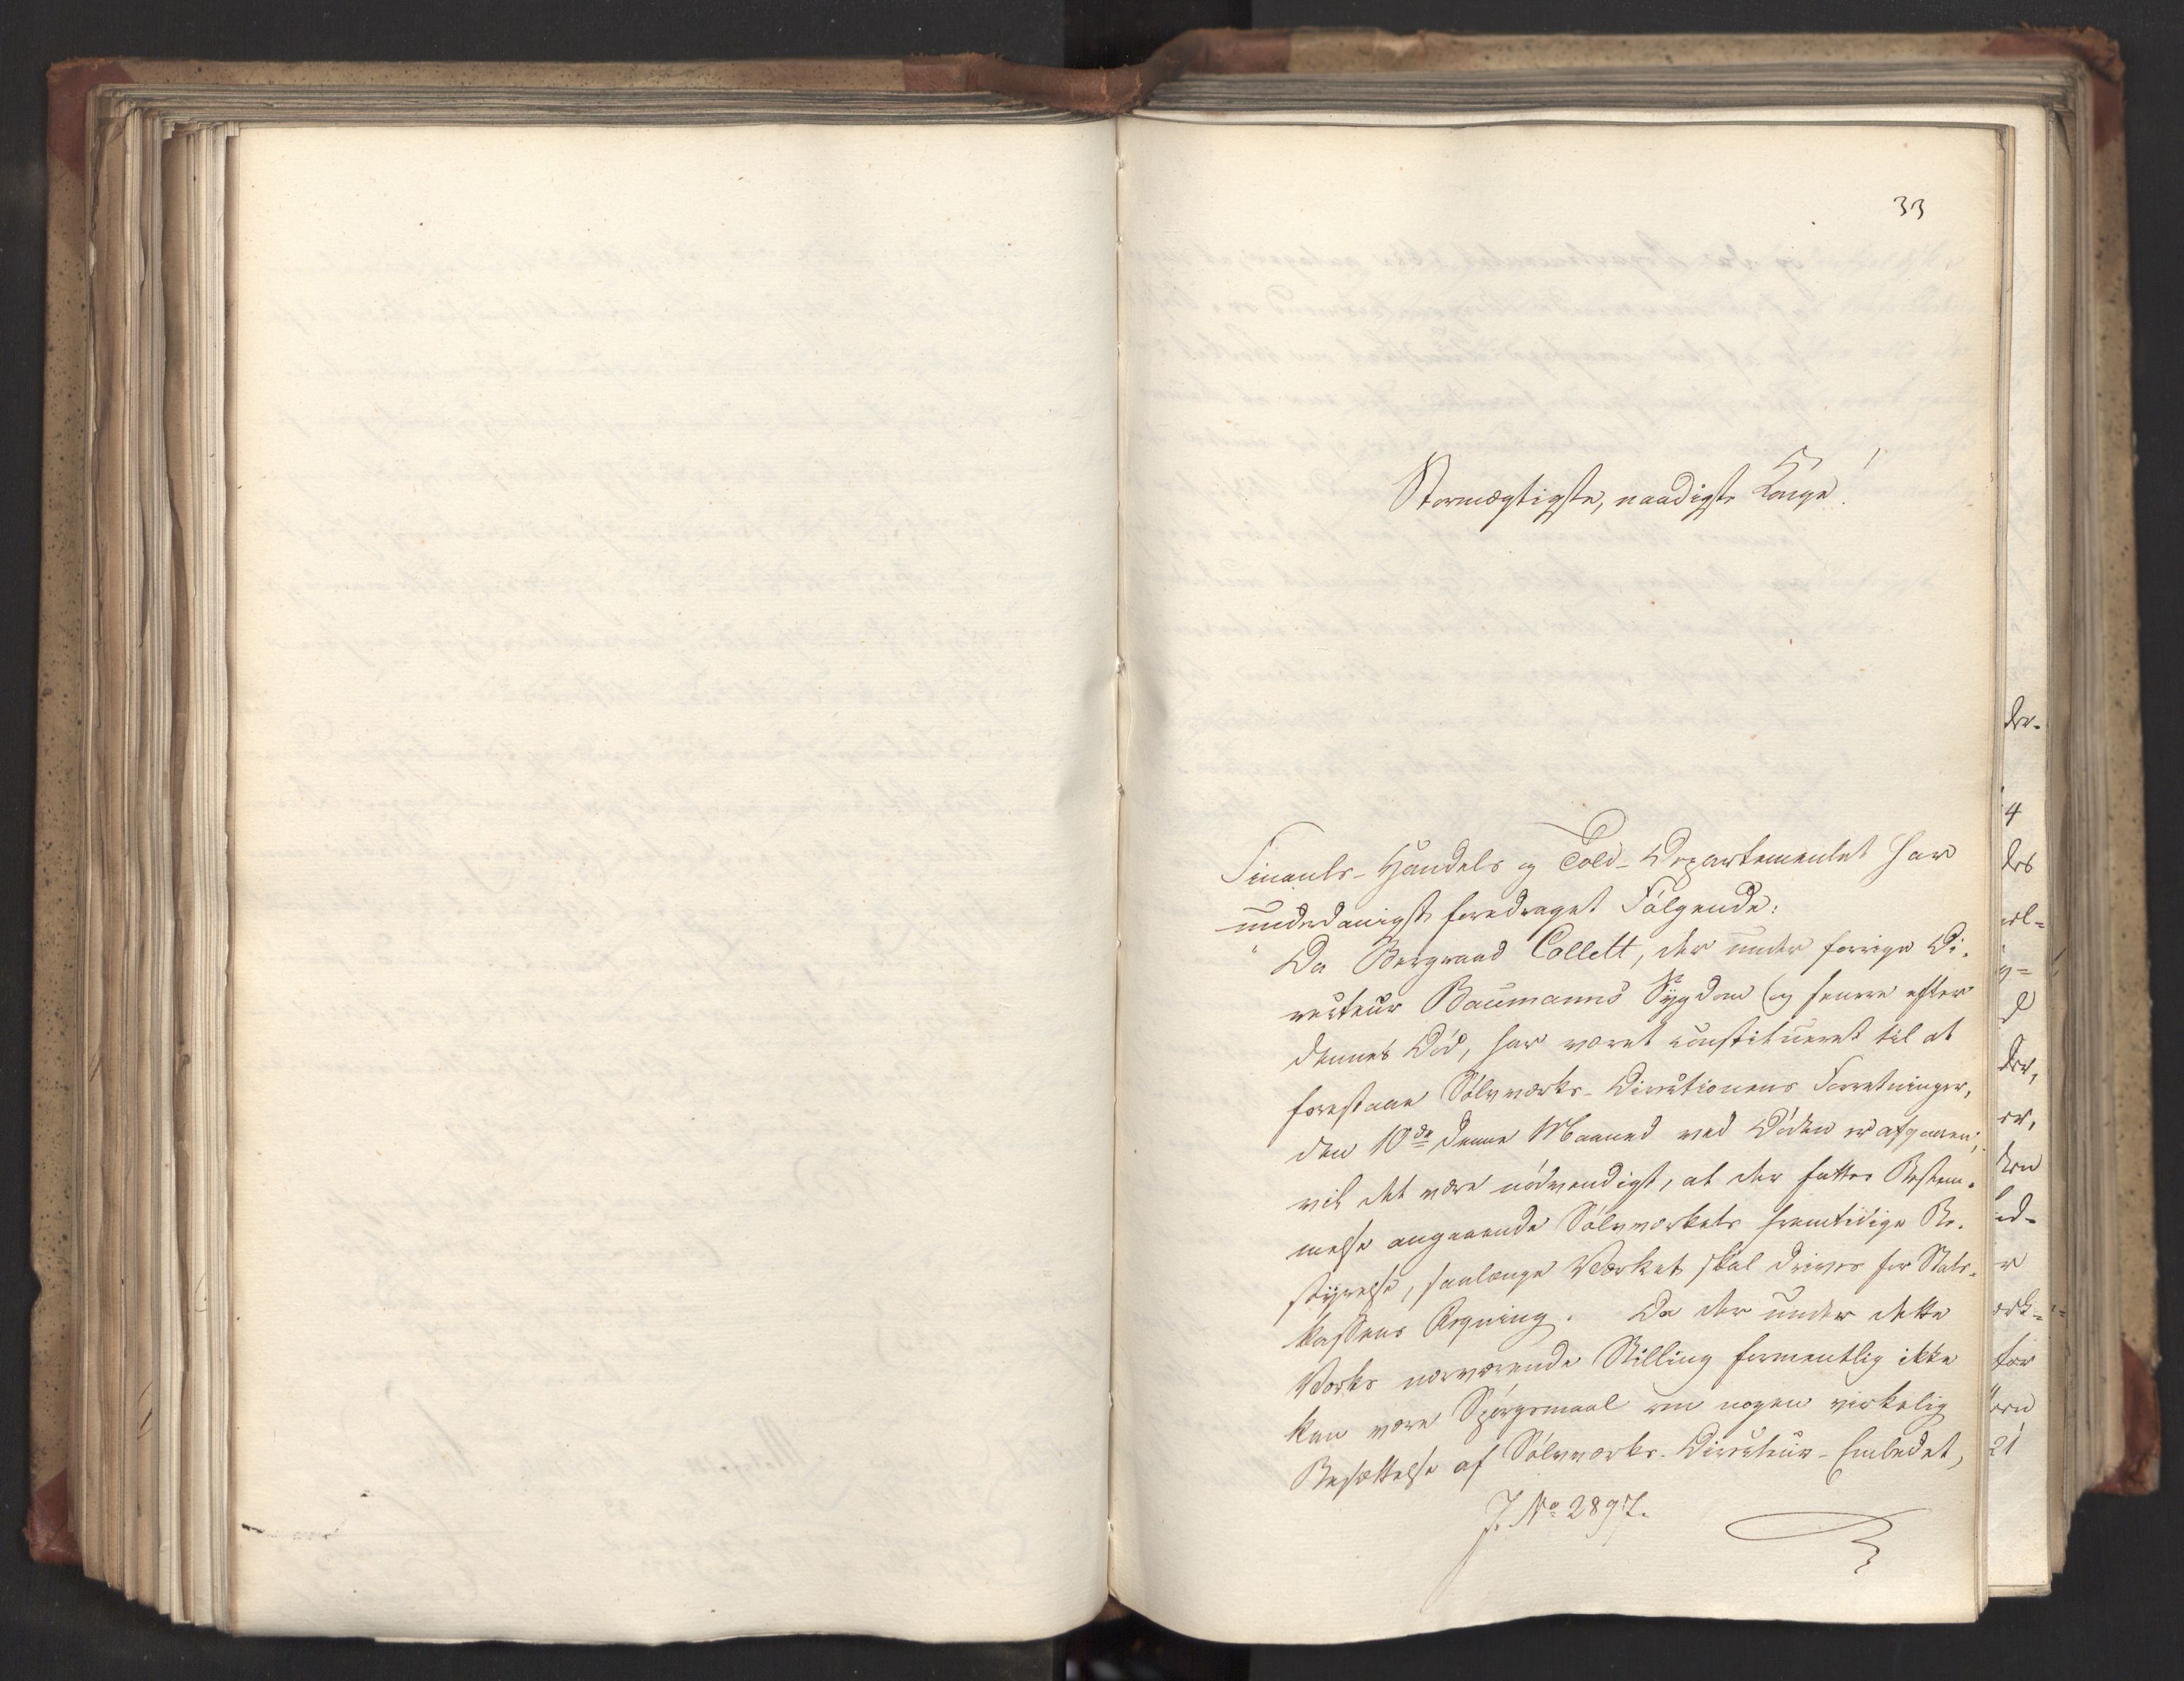 33
Stormægtigste, naadigste Konge!
Finants- Handels og Told-Departementet har
underdanigst foredraget Følgende:
"Da Bergraad Collett, der under forrige Di-
recteur Baumanns Sygdom (og senere efter
dennes Død, har været constitueret til at
forestaae Sølvværks-Directionens Forretninger,
den 10de denne Maaned ved Døden er afgaaen;
vil det være nødvendigt, at der fattes Bestem-
melse angaaende Sølvværkets fremtidige Be-
styrelse, saalænge Værket skal drives for Stats-
kassens Regning. Da der under dette
Værks nærværende Stilling formentlig ikke
kan være Spørgsmaal om nogen virkelig
Besættelse af Sølvværks-Directeur-Embedet,
J. No 2897.